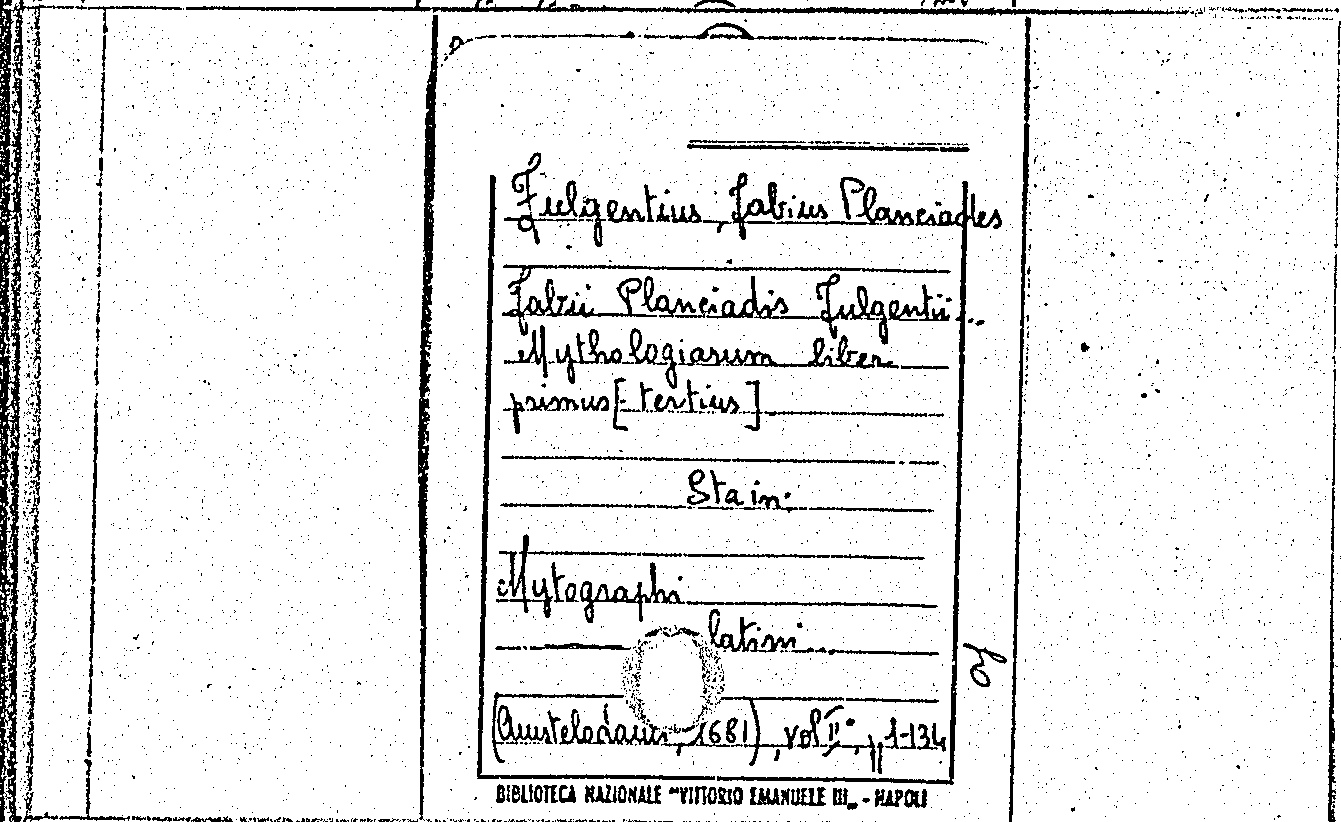 Fulgentius, Fabius Planciades
Fabii Planciadis Fulgentii...
Mythologiarum liber
primus [- tertius]
Sta in:
Mytographi
latini...
(Amstelodami, 1681), vol II°, pp 1-134
BIBLIOTECA NAZIONALE "VITTORIO EMANUELE III„ - NAPOLI